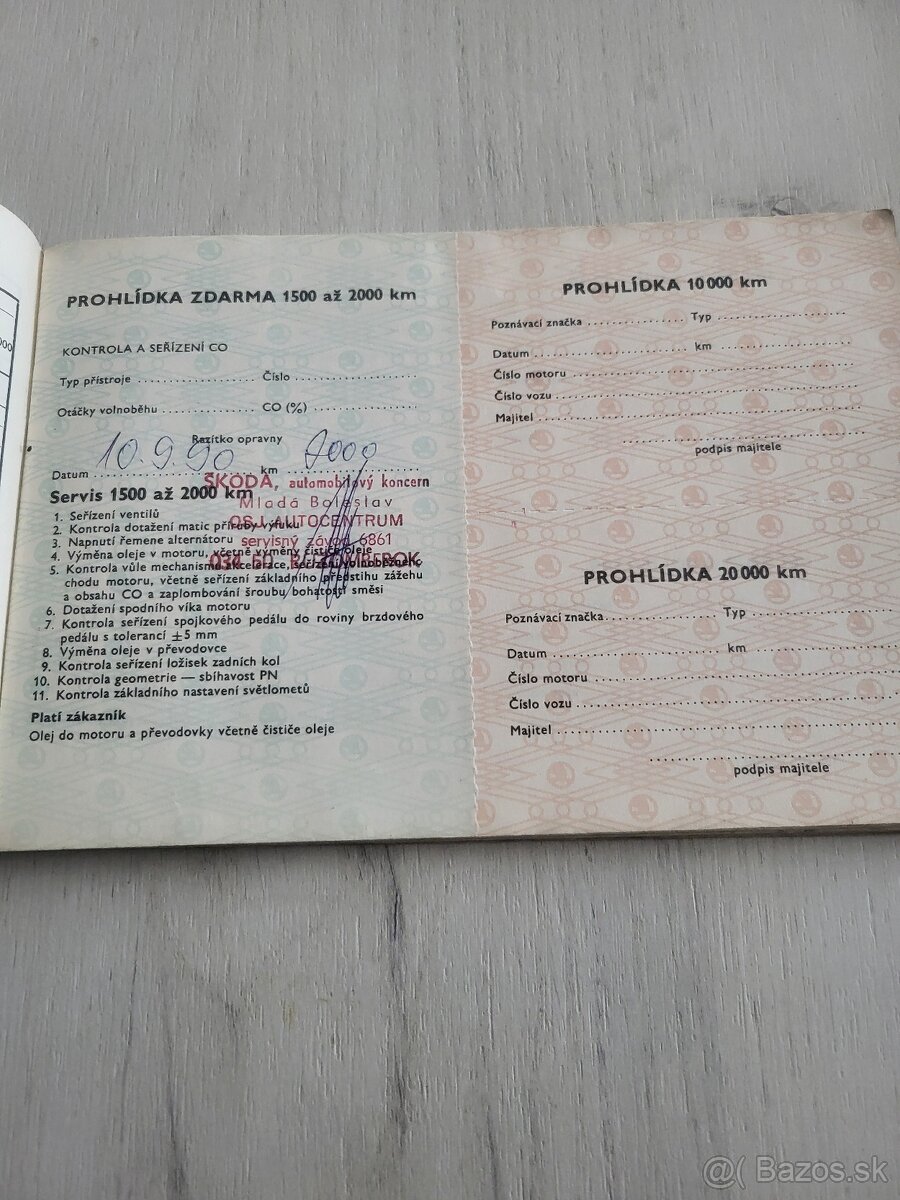 000
PROHLÍDKA ZDARMA 1500 až 2000 km
KONTROLA A SEŘÍZENÍ CO
Typ přístroje Číslo
Otáčky volnoběhu CO (%)
Razítko opravny
Datum 10.9.90 km
ŠKODA, automobilový koncern
Mladá Boleslav
AUTOCENTRUM
servisný závod 6861
Servis 1500 až 2000 km
1. Seřízení ventilů
2. Kontrola dotažení matic příruby výfuku
3. Napnutí řemene alternátoru
4. Výměna oleje v motoru, včetně výměny čističe oleje
5. Kontrola vůle mechanismu akcelerace, seřízení volnoběžných
chodu motoru, včetně seřízení základního předstihu zážehu
a obsahu CO a zaplombování šroubu bohatosti směsi
6. Dotažení spodního víka motoru
7. Kontrola seřízení spojkového pedálu do roviny brzdového
pedálu s tolerancí ±5 mm
8. Výměna oleje v převodovce
9. Kontrola seřízení ložisek zadních kol
10. Kontrola geometrie — sbíhavost PN
11. Kontrola základního nastavení světlometů
Platí zákazník
Olej do motoru a převodovky včetně čističe oleje
PROHLÍDKA 10 000 km
Poznávací značka Typ
Datum km
Číslo motoru
Číslo vozu
Majitel
podpis majitele
PROHLÍDKA 20 000 km
Poznávací značka Typ
Datum km
Číslo motoru
Číslo vozu
Majitel
podpis majitele
@( Bazos.sk